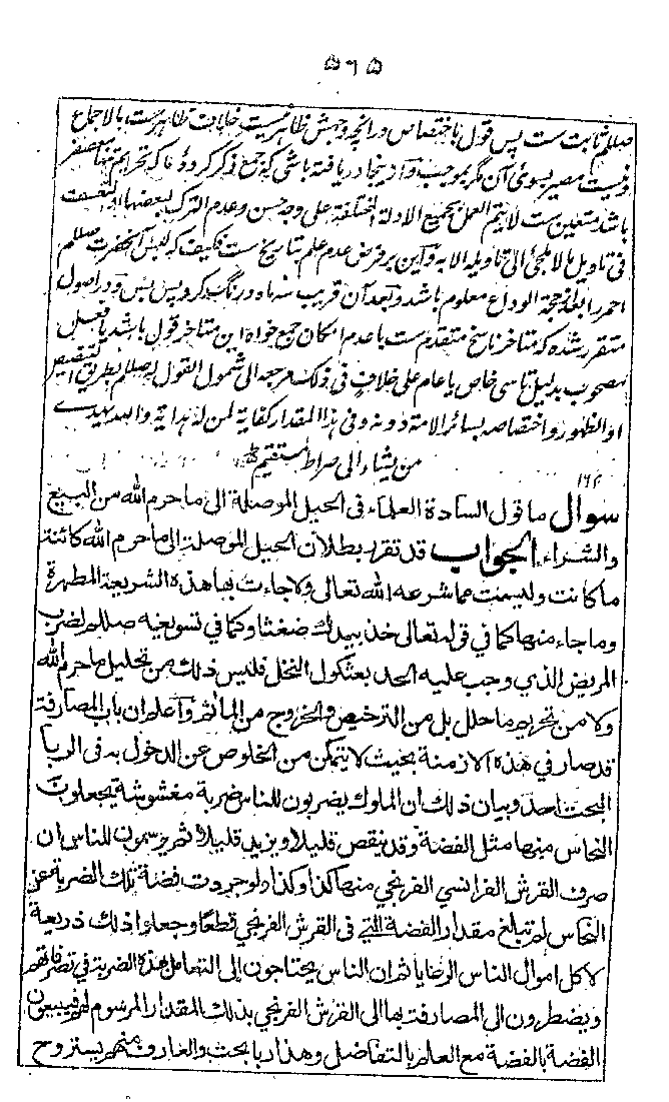 ۵۶۵
صلعم ثابت ست پس قول باختصاص ورانچه وجهش ظاهر نیست خلافت ظاهر ست بالاجماع
و نیست مصیر بسوئ آن مگر بموجب و آو اینجا دریافته باشی که جمع ذکر کرده ما که تحریم تنها معصفر
باشد متعین ست لا یتم العمل بجمیع الادلة المختلفة علی وجه حسن وعدم الترک لبعضها او التعسف
فی تاویل مالا ملجئ الی تاویله الا به و آین بر فرض عدم علم بتاریخ ست فکیف که لبس آنحضرت صلعم
احمر را بعد از حجة الوداع معلوم باشد و بعد آن قریب سه ماه درنگ کرد پس بس و در اصول
متقرر شده که متاخر ناسخ متقدم ست با عدم امکان جمع خواه این متاخر قول باشد یا فعل
مصحوب بدلیل تاسی خاص یا عام علی خلاف فی ذلک مرجعه الی شمول القول له صلعم بطریق التنصیص
او الظهور و اختصاصه بسائر الامة دونه وفی هذا المقدار کفایة لمن له هدایة والله یهدی
من یشاء الی صراط مستقیم
سوال ما قول السادة العلماء فی الحیل الموصلة الی ما حرم الله من البیع
والشراء الجواب قد تقرر بطلان الحیل الموصلة الی ما حرم الله کائنة
ما کانت ولیست مما شرعه الله تعالی ولا جاءت بها هذه الشریعة المطهرة
وما جاء منها کما فی قوله تعالی خذ بیدك ضغثا وکما فی تسویغه صللم لضرب
المریض الذی وجب علیه الحد بعثکول النخل فلیس ذلك من تحلیل ما حرم الله
ولا من تحریم ما حلل بل من الترخیص والخروج من المأثم وآعلم ان باب المصارفة
قد صار فی هذه الازمنة بحیث لا یتمکن من الخلوص عن الدخول به فی الربا
البحت احد وبیان ذلك ان الملوك یضربون للناس ضربة مغشوشة یجعلون
النحاس منها مثل الفضة وقد ینقص قلیلا ویزید قلیلا ثم یرسمون للناس ان
صرف القرش الفرانسی الفرنجی منها کذا وکذا ولو جردت فضة تلك الضربة عن
النحاس لم تبلغ مقدار الفضة التی فی القرش الفرنجی قطعا وجعلوا ذلك ذریعة
لاکل اموال الناس الرعایا ثم ان الناس یحتاجون الی التعامل بهذه الضربة فی تصرفاتهم
ویضطرون الی المصارفة بها الی القرش الفرنجی بذلك المقدار المرسوم لهم فیبیعون
الفضة بالفضة مع العلم بالتفاضل وهذا ربا بحت والعارف منهم یستروح